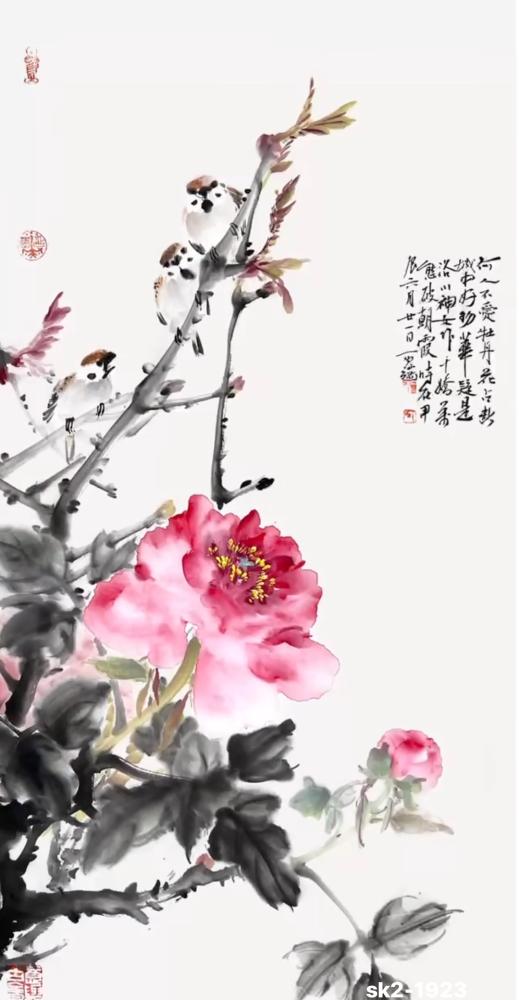 何人不爱牡丹花占断
城中好物華疑是
洛川神女作千嬌萬
態破朝霞時在甲
辰六月廿一日
sk2-1923